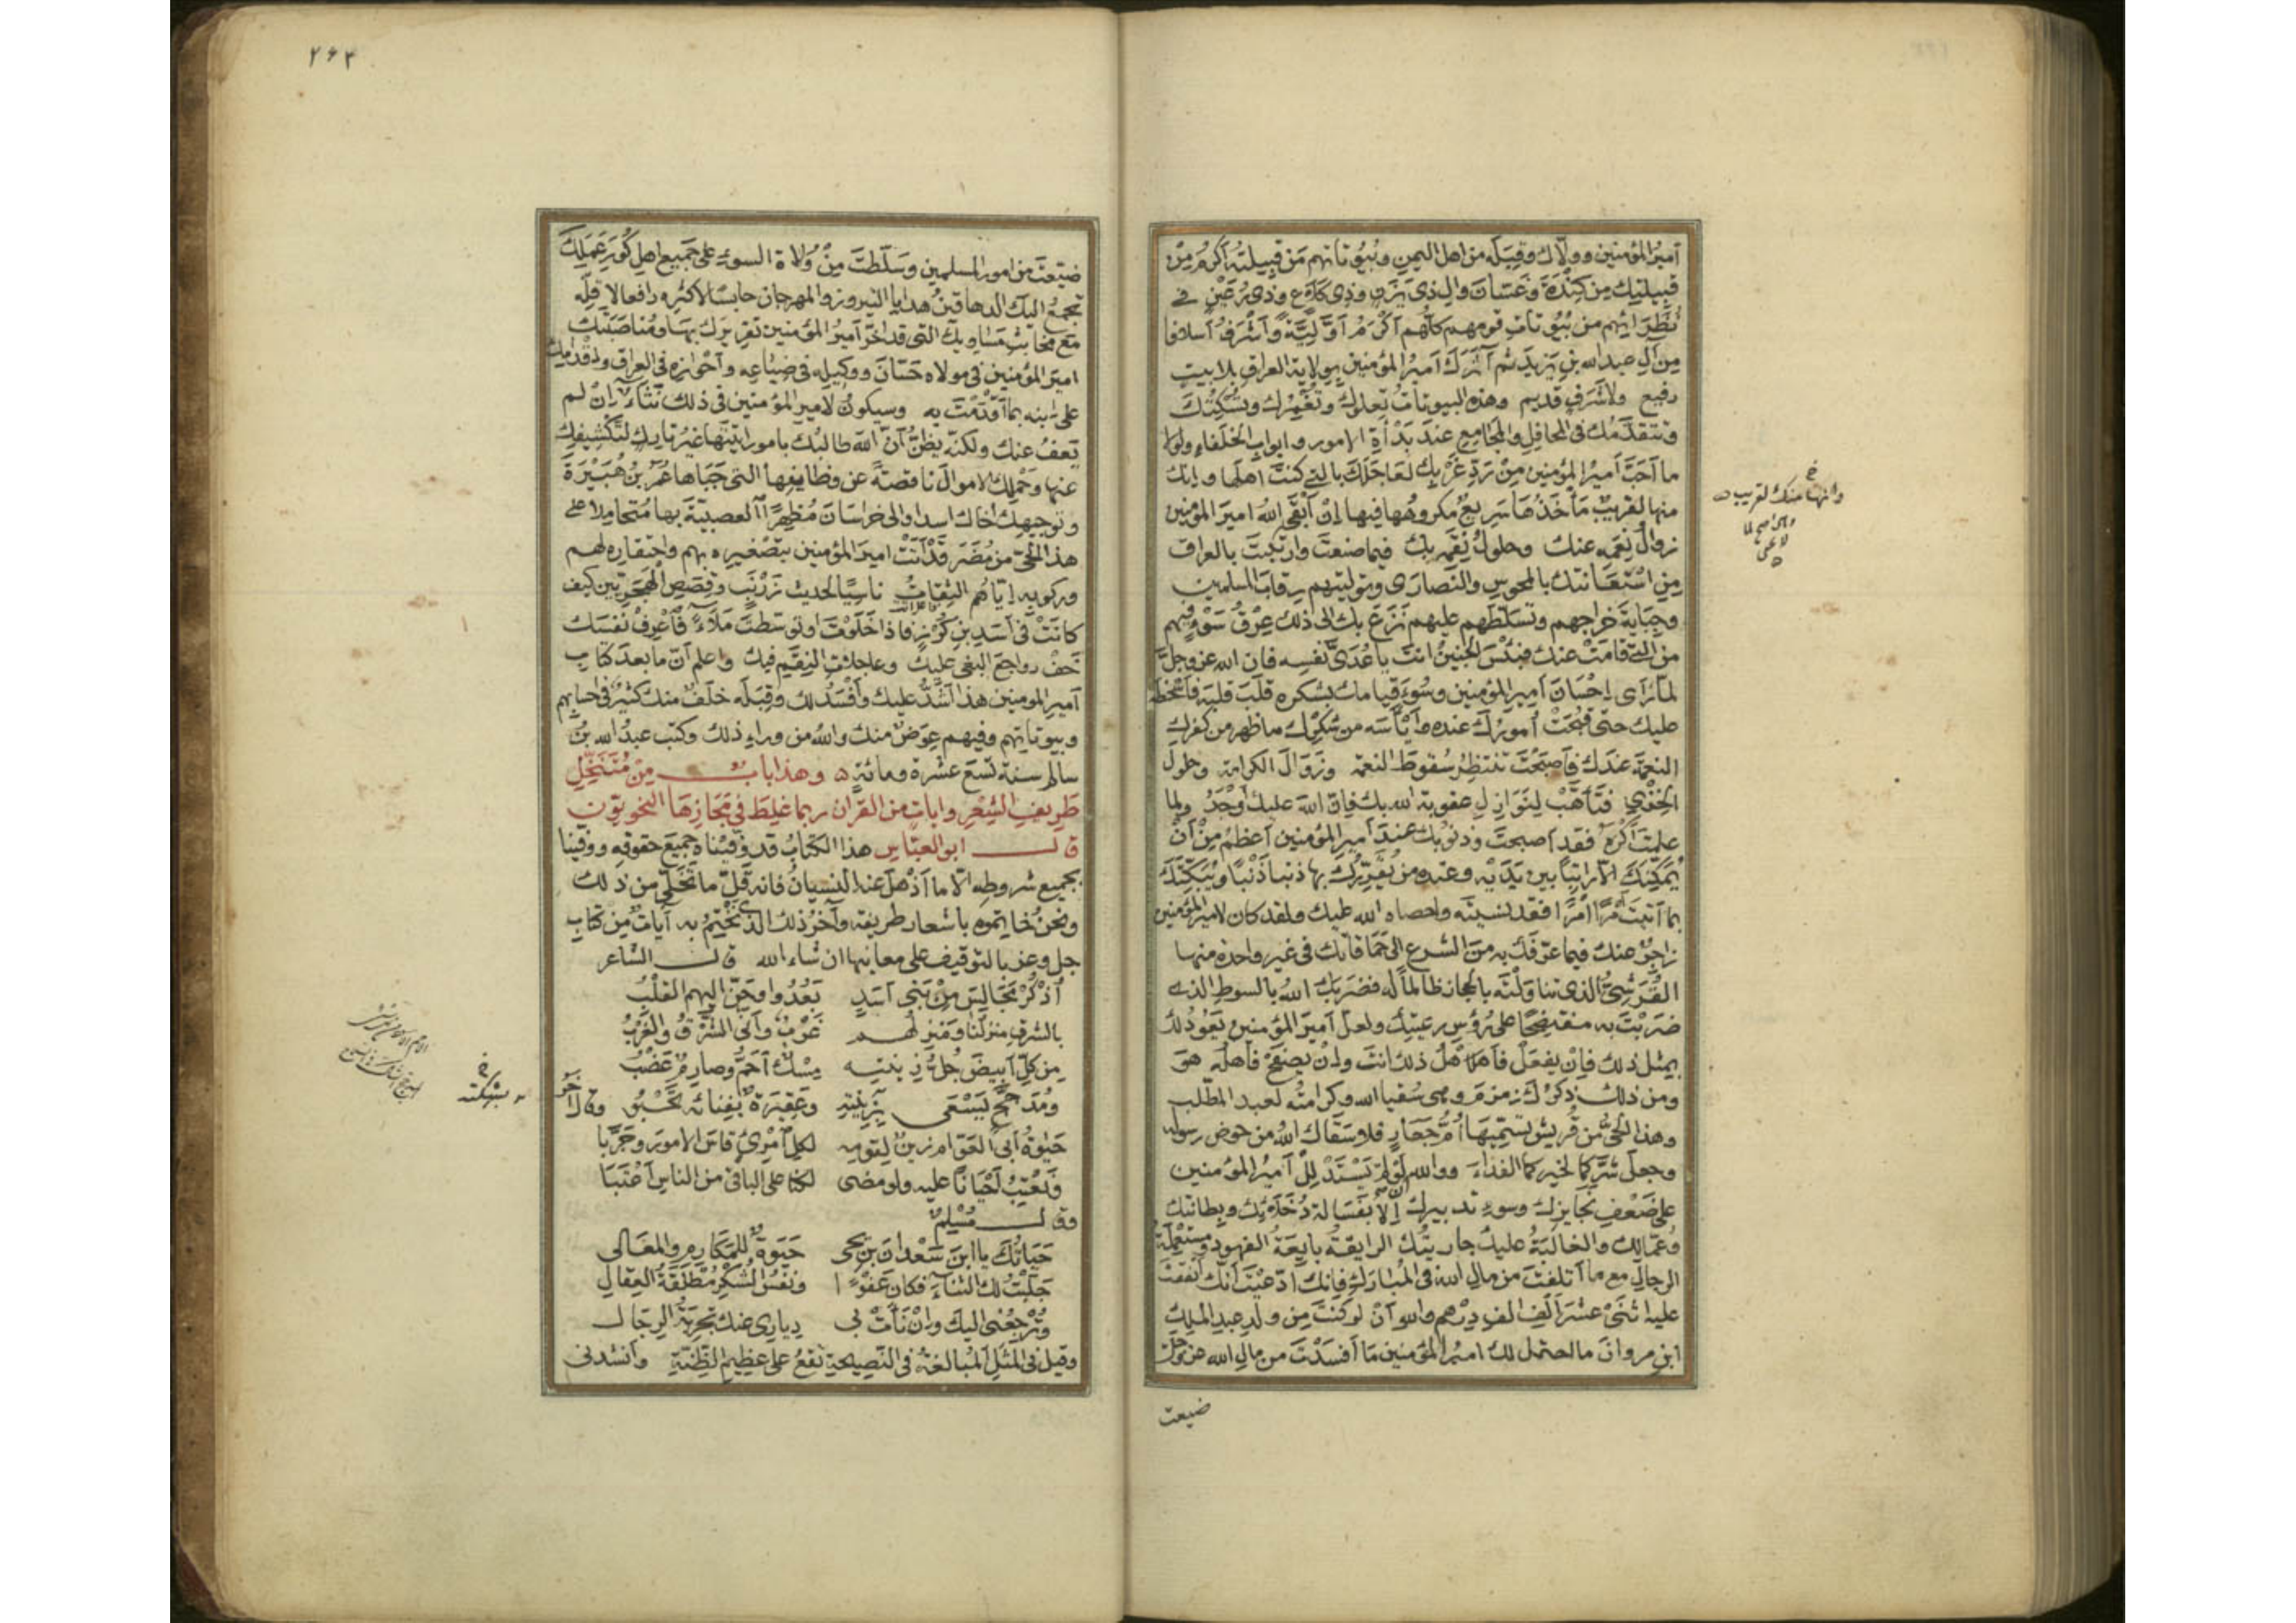 أميرُ المؤمنين وولّاك وقِبَلَه من اهل اليمن وبُيُوتاتهم مَن قَبيلتُه أكرمُ مِنْ
قبيلتِك من كِنْدَةَ وغَسّانَ وال ذى يَزَن وذى كَلاع وذى رُعَيْنٍ فى
نُظَرَائهم من بُيُوتاتِ قومهم كلُّهم أكْرَمُ أوّليَّةً وأشْرَفُ أسلافا
من آل عبد الله بن يَزيدَ ثم آثَرَكَ أميرُ المؤمنين بولاية العراق بلا بيت
رفيع ولا شَرَفٍ قديم وهذه البيوتاتُ تعلوك وتَغْمُرك وتُسْكِتُك
وتتقدّمُك فى المحافِل والمَجَامِع عند بَدْأةِ الامور وابواب الخلفاء ولولا
ما أحَبَّ أميرُ المؤمنين مِنْ رَدّ غَرْبك لعَاجَلَك بالتى كنتَ اهلَها وإنها
منها لقريبٌ مَأخذُها سَريعٌ مكروهُها فيها إنْ أبقَى اللهُ امير المؤمنين
زوالُ نِعَمِه عنك وحلولُ نِقَمِه بك فيما صنعتَ وارتكبتَ بالعراق
مِن اسْتعانتك بالمجوس والنَّصارَى وتوليتهم رقابَ المسلمين
وجِبَايَةَ خراجهم وتسلّطَهم عليهم نَزَعَ بك الى ذلك عِرْقُ سَوْءٍ فيهم
من التى قامَتْ عنك فبئسَ الجنينُ انتَ يا عُدَىَّ نفسِه فان الله عز وجلّ
لما رأى إحْسَانَ أميرِ المؤمنين وسُوءَ قيامك بشكره قلَبَ قلبَه فأسْخَطَه
عليك حتى قبُحَتْ أمورُك عنده وآيَأسَه من شُكرِك ما ظهر من كفرك
النعمةَ عندَك فأصبحْتَ تنتظرُ سُقوطَ النعمة وزَوَالَ الكرامة وحلولَ
الخِزْى فتأهَّبْ لِنَوازِلِ عقوبة الله بك فإنّ اللهَ عليك أوْجَدُ ولما
علمتَ أكْرَهُ فقد أصبحتَ وذنوبُك عند أميرِ المؤمنين أعظمُ مِنْ أنْ
يُبَكِّتَكَ الّا راتباً بين يَدَيْه وعنده من يُقرِّرُك بها ذنبا ذَنْباً ويُبَكِّتُك
بما أتيتَ أمْرًا أمْرًا فقد نسيتَه واحصاه الله عليك ولقد كان لامير المؤمنين
زاجِرٌ عنك فيما عرّفَك به من التسرع الى حَمَاقاتك فى غير واحدة منها
القُرَشىُّ الذى تناوَلْتَه بالحجاز ظالماً له فضرَبَك اللهُ بالسوط الذى
ضرَبْتَه به مفتضِحًا على رُؤس رعيّتك ولعلّ أميرَ المؤمنين يَعُودُ لك
بمثل ذلك فإنْ يفعَلْ فأهلُ ذلك انتَ وإنْ يصفَحْ فأهلُه هو
ومن ذلك ذكرُك زمزمَ وهى سُقيا الله وكرامتُه لعبد المطّلب
وهذا الحىِّ من قُريش تسمّيها أُمَّ جَعَارِ فلا سَقاك اللهُ من حوض رسوله
وجعل شرَّكما لخيركما الفداءَ ووالله لو لم يَسْتَدْلِلْ أميرُ المؤمنين
على ضَعْفِ نَحايزك وسوء تدبيرك إلّا بفَسَالة دُخَلائك وبطانتك
وعُمّالك والغالبَةُ عليك جاريتُك الرايقةُ بايعَةُ الفهود ومستعمِلَةُ
الرجالِ مع ما أتلفتَ من مالِ الله فى المُبارَك فإنك ادّعَيْتَ أنك أنفقتَ
عليه اثنَىْ عشرَ ألْفَ الف دِرْهم والله أنْ لو كنتَ مِن ولَدِ عبدِ الملك
ابن مروانَ ما احتمل لك اميرُ المؤمنين ما أفسَدْتَ من مالِ الله عز وجل
ضيعت
وانها منك لقريب
٢٦٣
ضيّعتَ من امور المسلمين وسَلّطتَ مِنْ وُلاة السوء على جميع اهل كُوَرِ عَمَلِك
تجمعُ اليك الدهاقينُ هدايا النيروز والمهرجان حابسًا لأكثره رافعا لاقلّه
مع مخابثِ مَساويك التى قد اخّر أميرُ المؤمنين تقريرَك بها ومُناصَبَتُك
اميرَ المؤمنين فى مولاه حسّانَ ووكيله فى ضِيَاعِه وأحْوازه فى العراق وإقدامك
على ابنه بما أقدَمْتَ به وسيكونُ لامير المؤمنين فى ذلك نَثَاءٌ إنْ لم
يَعفُ عنك ولكنه يظنّ أنّ اللهَ طالبُك بامور أتيتَها غيرُ تارك لتَكشِيفِك
عنها وحَمْلِك الاموالَ ناقصةً عن وظايفِها التى جَبَاها عُمَرُ بنُ هُبَيْرَةَ
وتوجيهِك أخاك اسدا والى خراسَانَ مُظهِرًا العصبيّةَ بها مُتَحاملا على
هذا الحىِّ من مُضَرَ قَدْ أتَتْ اميرَ المؤمنين بتصْغيره بهم واحتقاره لهم
وركوبِه إيّاهُم الثِّقاتُ ناسِيًا لحديث زَرْنَبٍ وقِصَصِ الهَجَريّين كيف
كانَتْ فى أسَدِ بن كُرْزٍ فاذا خلَوْتَ او توسّطتَ مَلَاءً فاعْرِفْ نفسَك
وخَفْ رواجعَ البغى عليك وعاجلات النِقَم فيك واعلم أنّ ما بعدَ كتابِ
أميرِ المومنين هذا أشَدُّ عليك وأفسَدُ لك وقِبَلَه خلَفٌ منك كثيرٌ فى احسابهم
وبيوتاتهم وفيهم عِوَضٌ منك واللهُ من وراء ذلك وكتب عبدُ الله بنُ
سالم سنة تسْعَ عشرة ومائة وهذا بابٌ مِنْ مُتَنَخَّلِ
طَريفِ الشِّعْرِ وايات من القران ربما غلِطَ فى مَجَازِهَا النحويّون
قال ابو العبّاس هذا الكتابُ قد وَفّيْناه جميعَ حقوقِه ووفَينا
بجميع شروطه الّا ما أذْهلَ عنه النسيانُ فانه قَلّ ما تَخلّى من ذلك
ونحنُ خاتموه باشعار طريفة وآخرُ ذلك الذى نَخْتِمُ به آياتٌ من كتاب
جل وعز بالتوقيف على معانيها ان شاء الله قال الشاعر
أُذكُرْ مَجَالسَ مِنْ بَنى أسَدٍ بَعُدُوا وحَنّ إليهم القلْبُ
بالشرق منزلُنا ومنزلهم غَرْبٌ وأنَّى الشَّرْقُ والغَرْبُ
من كلّ أبيضَ جُلُّ زينتِه مِسْكٌ أحَمُّ وصارِمٌ عَضْبُ
ومُدَجَّجٌ يَسْعَى بِزينتِه وعَقِيرَةٌ بِفِنائه تَحْبُو وقال آخر
حَيٰوةُ أبى العوّام زينٌ لقومِه لكلّ امْرِئٍ قاسَ الامورَ وجَرَّبا
ونَعْتِبُ أحْيانًا عليه ولو مضى لكنّا على الباقى من الناسِ أعْتَبَا
وقال مُسْلِمٌ
حَيَاتُك يا ابْنَ سَعْدانَ بن يحيى حَيٰوةٌ للمَكَارِم والمعَالى
جَلَبْتُ لك الثناءَ فكان عَفْوًا ونفسُ الشكرِ مُطلَقةُ العِقالِ
وتُرْجِعُنى اليكَ وإنْ نأتْ بى ديارى عنك تجربَةُ الرِّجالِ
وقيل فى المثَلِ المُبالغةُ فى النّصيحةِ تقعُ على عظيم الظِنّةِ وأنشدنى